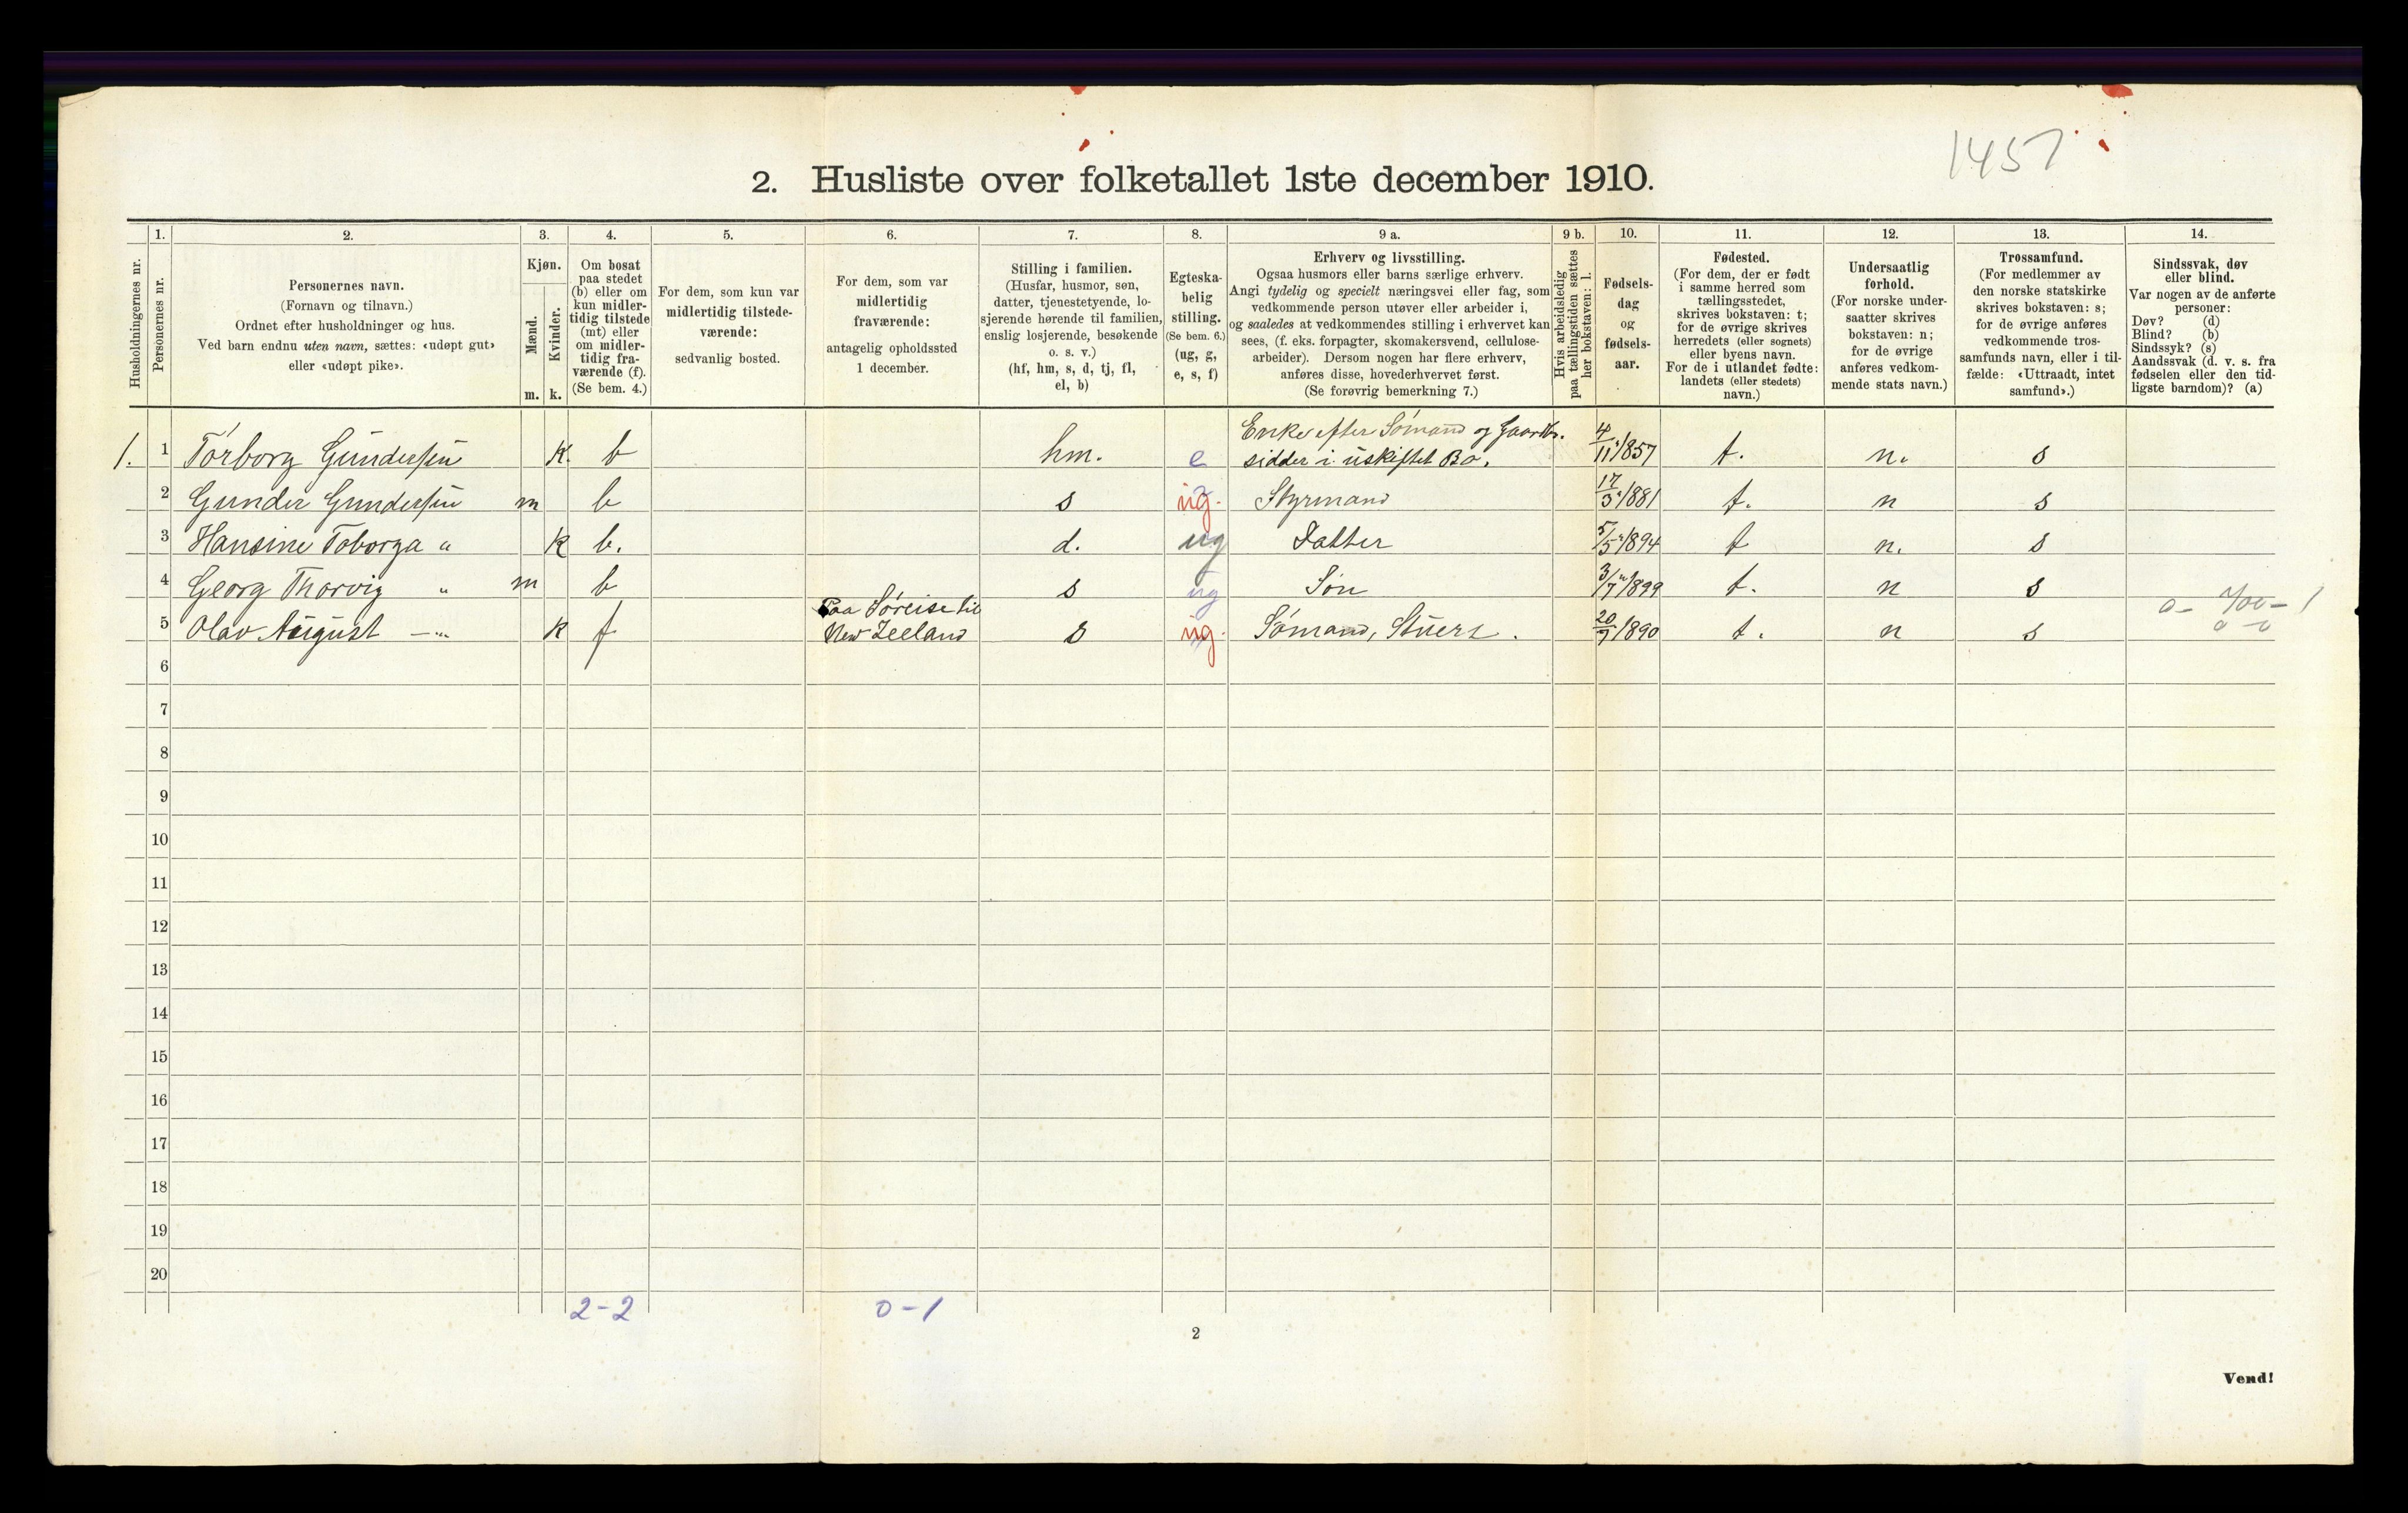 1457
2. Husliste over folketallet 1ste december 1910.
Husholdningernes nr.
1.
Personernes nr.
2.
Personernes navn.
(Fornavn og tilnavn.)
Ordnet efter husholdninger og hus.
Ved barn endnu uten navn, sættes: «udøpt gut»
eller «udøpt pike».
3.
Kjøn.
Mænd.
Kvinder.
m. k.
4.
Om bosat
paa stedet
(b) eller om
kun midler-
tidig tilstede
(mt) eller
om midler-
tidig fra-
værende (f).
(Se bem. 4.)
5.
For dem, som kun var
midlertidig tilstede-
værende:
sedvanlig bosted.
6.
For dem, som var
midlertidig
fraværende:
antagelig opholdssted
1 december.
7.
Stilling i familien.
(Husfar, husmor, søn,
datter, tjenestetyende, lo-
sjerende hørende til familien,
enslig losjerende, besøkende
o. s. v.)
(hf, hm, s, d, tj, fl,
el, b)
8.
Egteska-
belig
stilling.
(Se bem. 6.)
(ug, g,
e, s, f)
9 a.
Erhverv og livsstilling.
Ogsaa husmors eller barns særlige erhverv.
Angi tydelig og specielt næringsvei eller fag, som
vedkommende person utøver eller arbeider i,
og saaledes at vedkommendes stilling i erhvervet kan
sees, (f. eks. forpagter, skomakersvend, cellulose-
arbeider). Dersom nogen har flere erhverv,
anføres disse, hovederhvervet først.
(Se forøvrig bemerkning 7.)
9 b.
Hvis arbeidsledig
paa tællingstiden sættes
her bokstaven: l.
10.
Fødsels-
dag
og
fødsels-
aar.
11.
Fødested.
(For dem, der er født
i samme herred som
tællingsstedet,
skrives bokstaven: t;
for de øvrige skrives
herredets (eller sognets)
eller byens navn.
For de i utlandet fødte:
landets (eller stedets)
navn.)
12.
Undersaatlig
forhold.
(For norske under-
saatter skrives
bokstaven: n;
for de øvrige
anføres vedkom-
mende stats navn.)
13.
Trossamfund.
(For medlemmer av
den norske statskirke
skrives bokstaven: s;
for de øvrige anføres
vedkommende tros-
samfunds navn, eller i til-
fælde: «Uttraadt, intet
samfund».)
14.
Sindssvak, døv
eller blind.
Var nogen av de anførte
personer:
Døv? (d)
Blind? (b)
Sindssyk? (s)
Aandssvak (d. v. s. fra
fødselen eller den tid-
ligste barndom)? (a)
Enke efter Sømand og Gaardbr.
1. 1 Torborg Gundersen K. b hm. e sidder i uskiftet Bo. 4/11 1857 t. n. s
2 Gunder Gundersen m b s ug. Styrmand 17/3 1881 t. n s
3 Hansine Toborga " K b. d. ug Datter 5/5 1894 t n. s
4 Georg Thorvig " m b s ug Søn 3/7 1899 t. n s
Paa Søreise til
5 Olav August —"— K f New Zeeland s ug. Sømand, Stuert. 20/9 1890 t. n s
6
7
8
9
10
11
12
13
14
15
16
17
18
19
20
2-2 0-1
2
Vend!